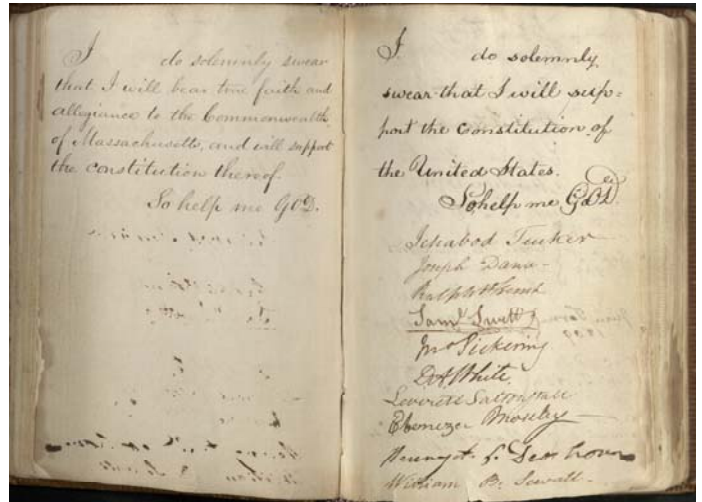 I do solemnly swear
that I will bear true faith and
allegiance to the Commonwealth
of Massachusetts, and will support
the constitution thereof.
So help me GOD.
I do solemnly
swear that I will sup=
port the constitution of
the United States.
So help me GOD.
Ichabod Tucker
Joseph Dana
Ralph H. French
Saml Swett
Jno Pickering
D.A. White
Leverett Saltonstall
Ebenezer Moseley
William B. Sewall